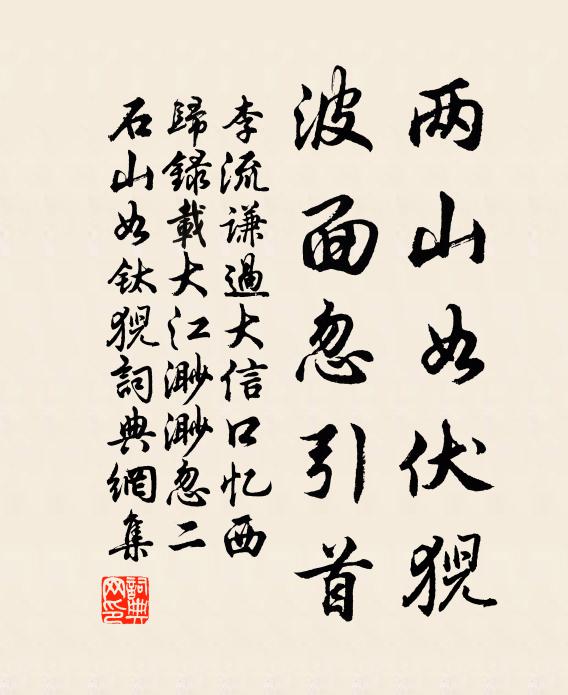 两山如伏猊
波面忽引首
李流谦過大信口忆西
歸録載大江渺渺忽二
石山如鈦猊詞典網集
詞典網印